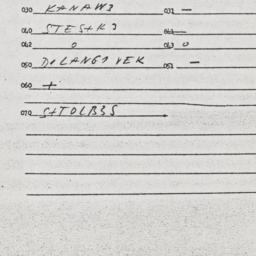 030 KANAW3 032 —
040 STES+K3 041 —
042 0 043 0
050 D.LANG1 VEK 051 —
060 +
070 S+TOLB3S